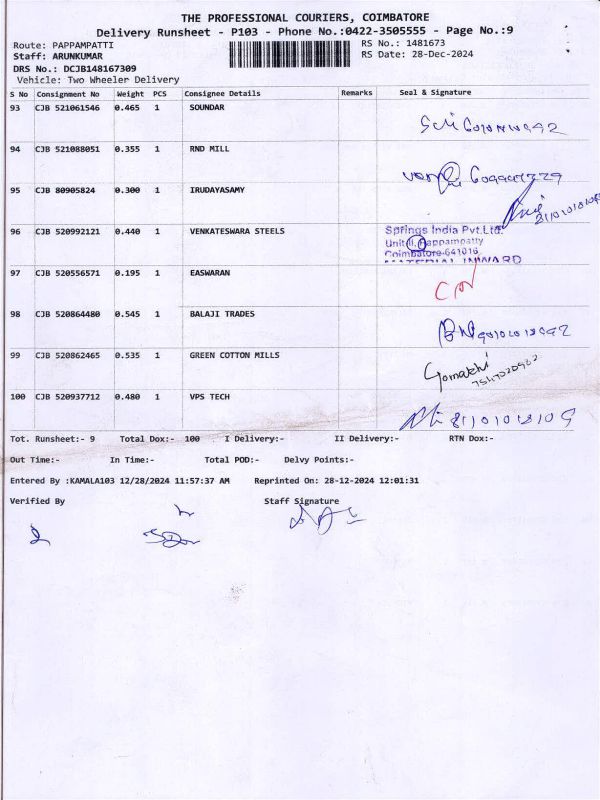 THE PROFESSIONAL COURIERS, COIMBATORE
Delivery Runsheet - P103 - Phone No.:0422-3505555 - Page No.:9
Route: PAPPAMPATTI
RS No.: 1481673
Staff: ARUNKUMAR
RS Date: 28-Dec-2024
DRS No.: DCJB148167309
Vehicle: Two Wheeler Delivery
S No Consignment No Weight PCS Consignee Details Remarks Seal & Signature
93 CJB 521061546 0.465 1 SOUNDAR
94 CJB 521088051 0.355 1 RND MILL
95 CJB 80905824 0.300 1 IRUDAYASAMY
96 CJB 520992121 0.440 1 VENKATESWARA STEELS
Springs India Pvt.Ltd.
Unit II, Pappampatty
Coimbatore-641016
MATERIAL INWARD
97 CJB 520556571 0.195 1 EASWARAN
98 CJB 520864480 0.545 1 BALAJI TRADES
99 CJB 520862465 0.535 1 GREEN COTTON MILLS
Gomathi
100 CJB 520937712 0.480 1 VPS TECH
Tot. Runsheet:- 9 Total Dox:- 100 I Delivery:- II Delivery:- RTN Dox:-
Out Time:- In Time:- Total POD:- Delvy Points:-
Entered By :KAMALA103 12/28/2024 11:57:37 AM Reprinted On: 28-12-2024 12:01:31
Verified By Staff Signature